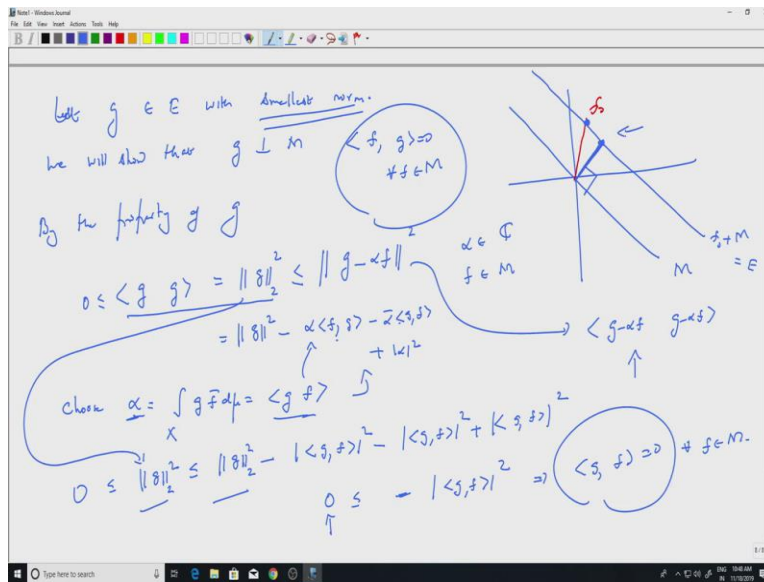 Note1 - Windows Journal
File Edit View Insert Actions Tools Help
Let g ∈ E with smallest norm.
we will show that g ⊥ M
<f, g>=0
∀ f ∈ M
f₀
M
f₀+M
= E
By the property of g
0 ≤ <g g> = ||g||₂² ≤ ||g-αf||²
α ∈ ℂ
f ∈ M
= ||g||² - α<f, g> - ᾱ<g,f>
+ |α|²
<g-αf g-αf>
Choose α = ∫ g f̄ dμ = <g f>
X
0 ≤ ||g||₂² ≤ ||g||₂² - |<g,f>|² - |<g,f>|² + |<g,f>|²
0 ≤ - |<g,f>|² ⇒ <g, f>=0 ∀ f ∈ M.
8/8
Type here to search
ENG 10:48 AM
IN 11/10/2019